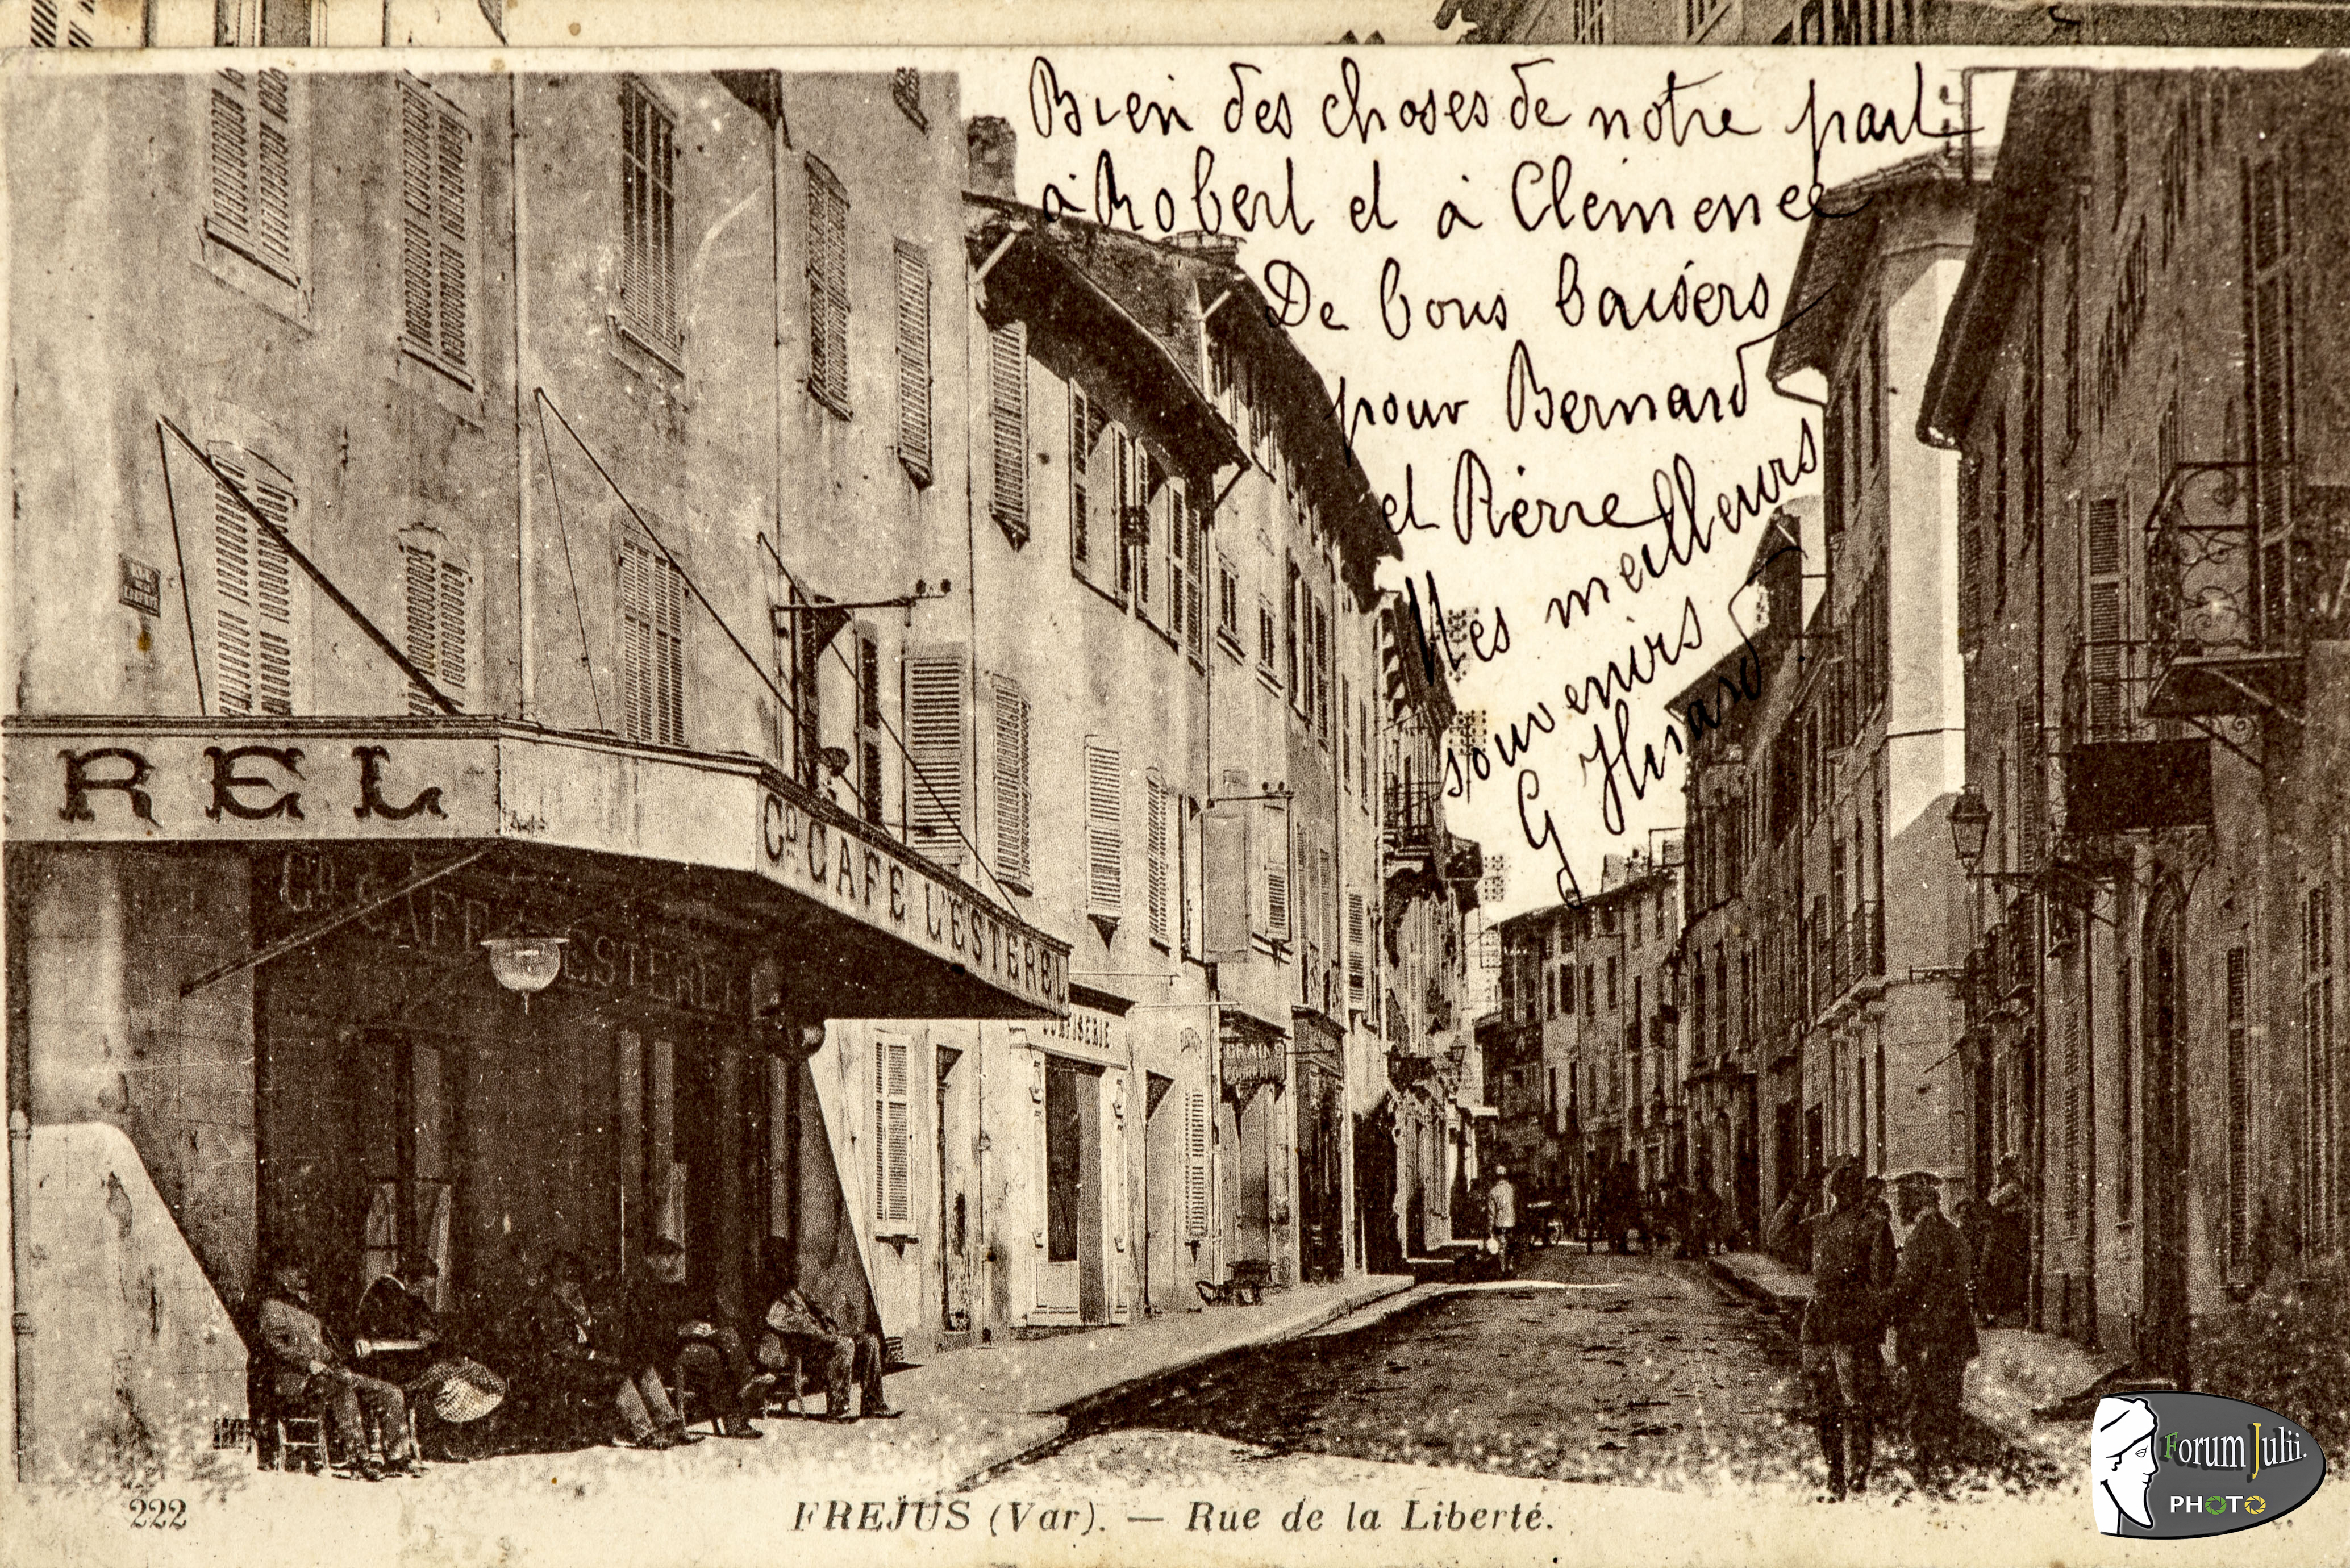 Bien des choses de notre part
à Robert et à Clémence
De bons baisers
pour Bernard
et Pierre
Mes meilleurs
souvenirs
G
REL
Gd CAFÉ L'ESTEREL
Gd CAFE L'ESTEREL
222
FREJUS (Var). — Rue de la Liberté.
Forum Julii.
PHOTO